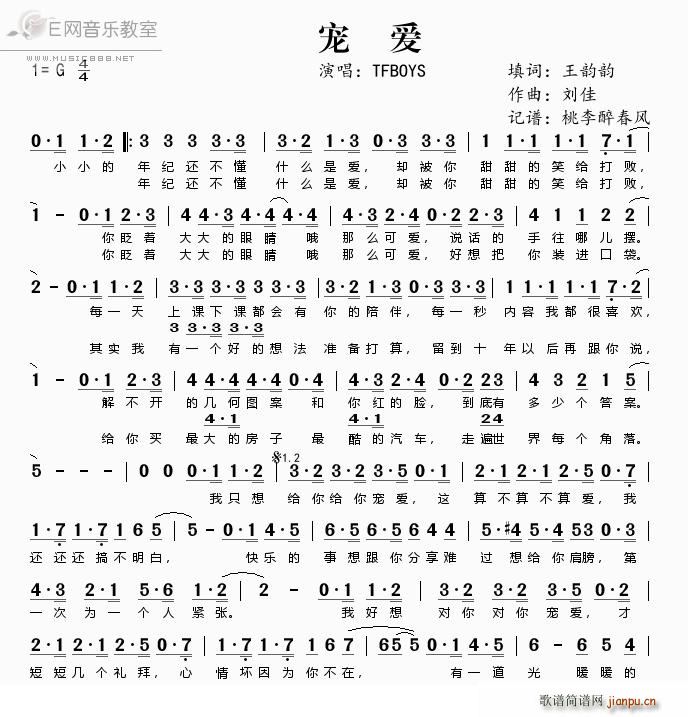 E网音乐教室
WWW.MUSIC888.NET
宠 爱
1= G 4/4
演唱：TFBOYS
填词：王韵韵
作曲：刘佳
记谱：桃李醉春风
0·1 1·2 |: 3 3 3 3·3 | 3·2 1·3 0·3 1·2 | 1 1·1 1·1 7·1 |
小小的 年纪还不懂 什么是爱，却被你 甜甜的笑给打败，
年纪还不懂 什么是爱，却被你 甜甜的笑给打败，
1 - 0·1 2·3 | 4·4 3·4 4·4 4·4 | 3·4 2·4 0·2 2·3 | 4 1 1 2 2 |
你眨着 大大的眼睛 哦 那么可爱，说话的 手往哪儿摆。
你眨着 大大的眼睛 哦 那么可爱，好想把 你装进口袋。
2 - 0·1 1·2 | 3·3 3·3 3·3 3·3 | 3·2 1·3 0·3 3·3 | 1·1 1·1 1·1 7·2 |
每一天 上课下课都会有 你的陪伴，每一秒 内容我都很喜欢，
3 3·3 3·3
其实我 有一个好的想法 准备打算，留到十年以后再跟你说，
1 - 0·1 2·3 | 4·4 4·4 4·4 0·4 | 4·3 2·4 0·2 23 | 4 3 2 1 5 |
解不开 的几何图案 和 你红的脸，到底有 多少个答案。
4·1 4·1 24
给你买 最大的房子 最 酷的汽车，走遍世 界每个角落。
5 - - - | 0 0 0·1 1·2 | 1.2 3·2 3·2 3·2 3·5 | 2·1 2·1 2·5 0·7 |
我只想 给你给你宠爱，这 算不算不算爱，我
1·7 1·7 1 6 5 | 5 - 0·1 4·5 | 6·5 6·5 6·2 4 4 | 5·#4 5·4 53 0·5 |
还还还搞不明白，快乐的 事想跟你分享难 过想给你肩膀，第
4·3 2·1 5·6 1·2 | 2 - 0·1 1·2 | 3·2 3·2 3·2 3·5 | 2·1 2·1 2·5 0·2 |
一次为一个人紧张。我好想 对你对你宠爱，才
2·1 2·1 5·2 0·7 | 1·7 1·7 1 6 7 | 6 65 5 0·1 4·5 | 6 - 6·5 4 |
短短几个礼拜，心 情坏因为你不在，有一道 光 暖暖的
歌谱简谱网
jianpu.cn